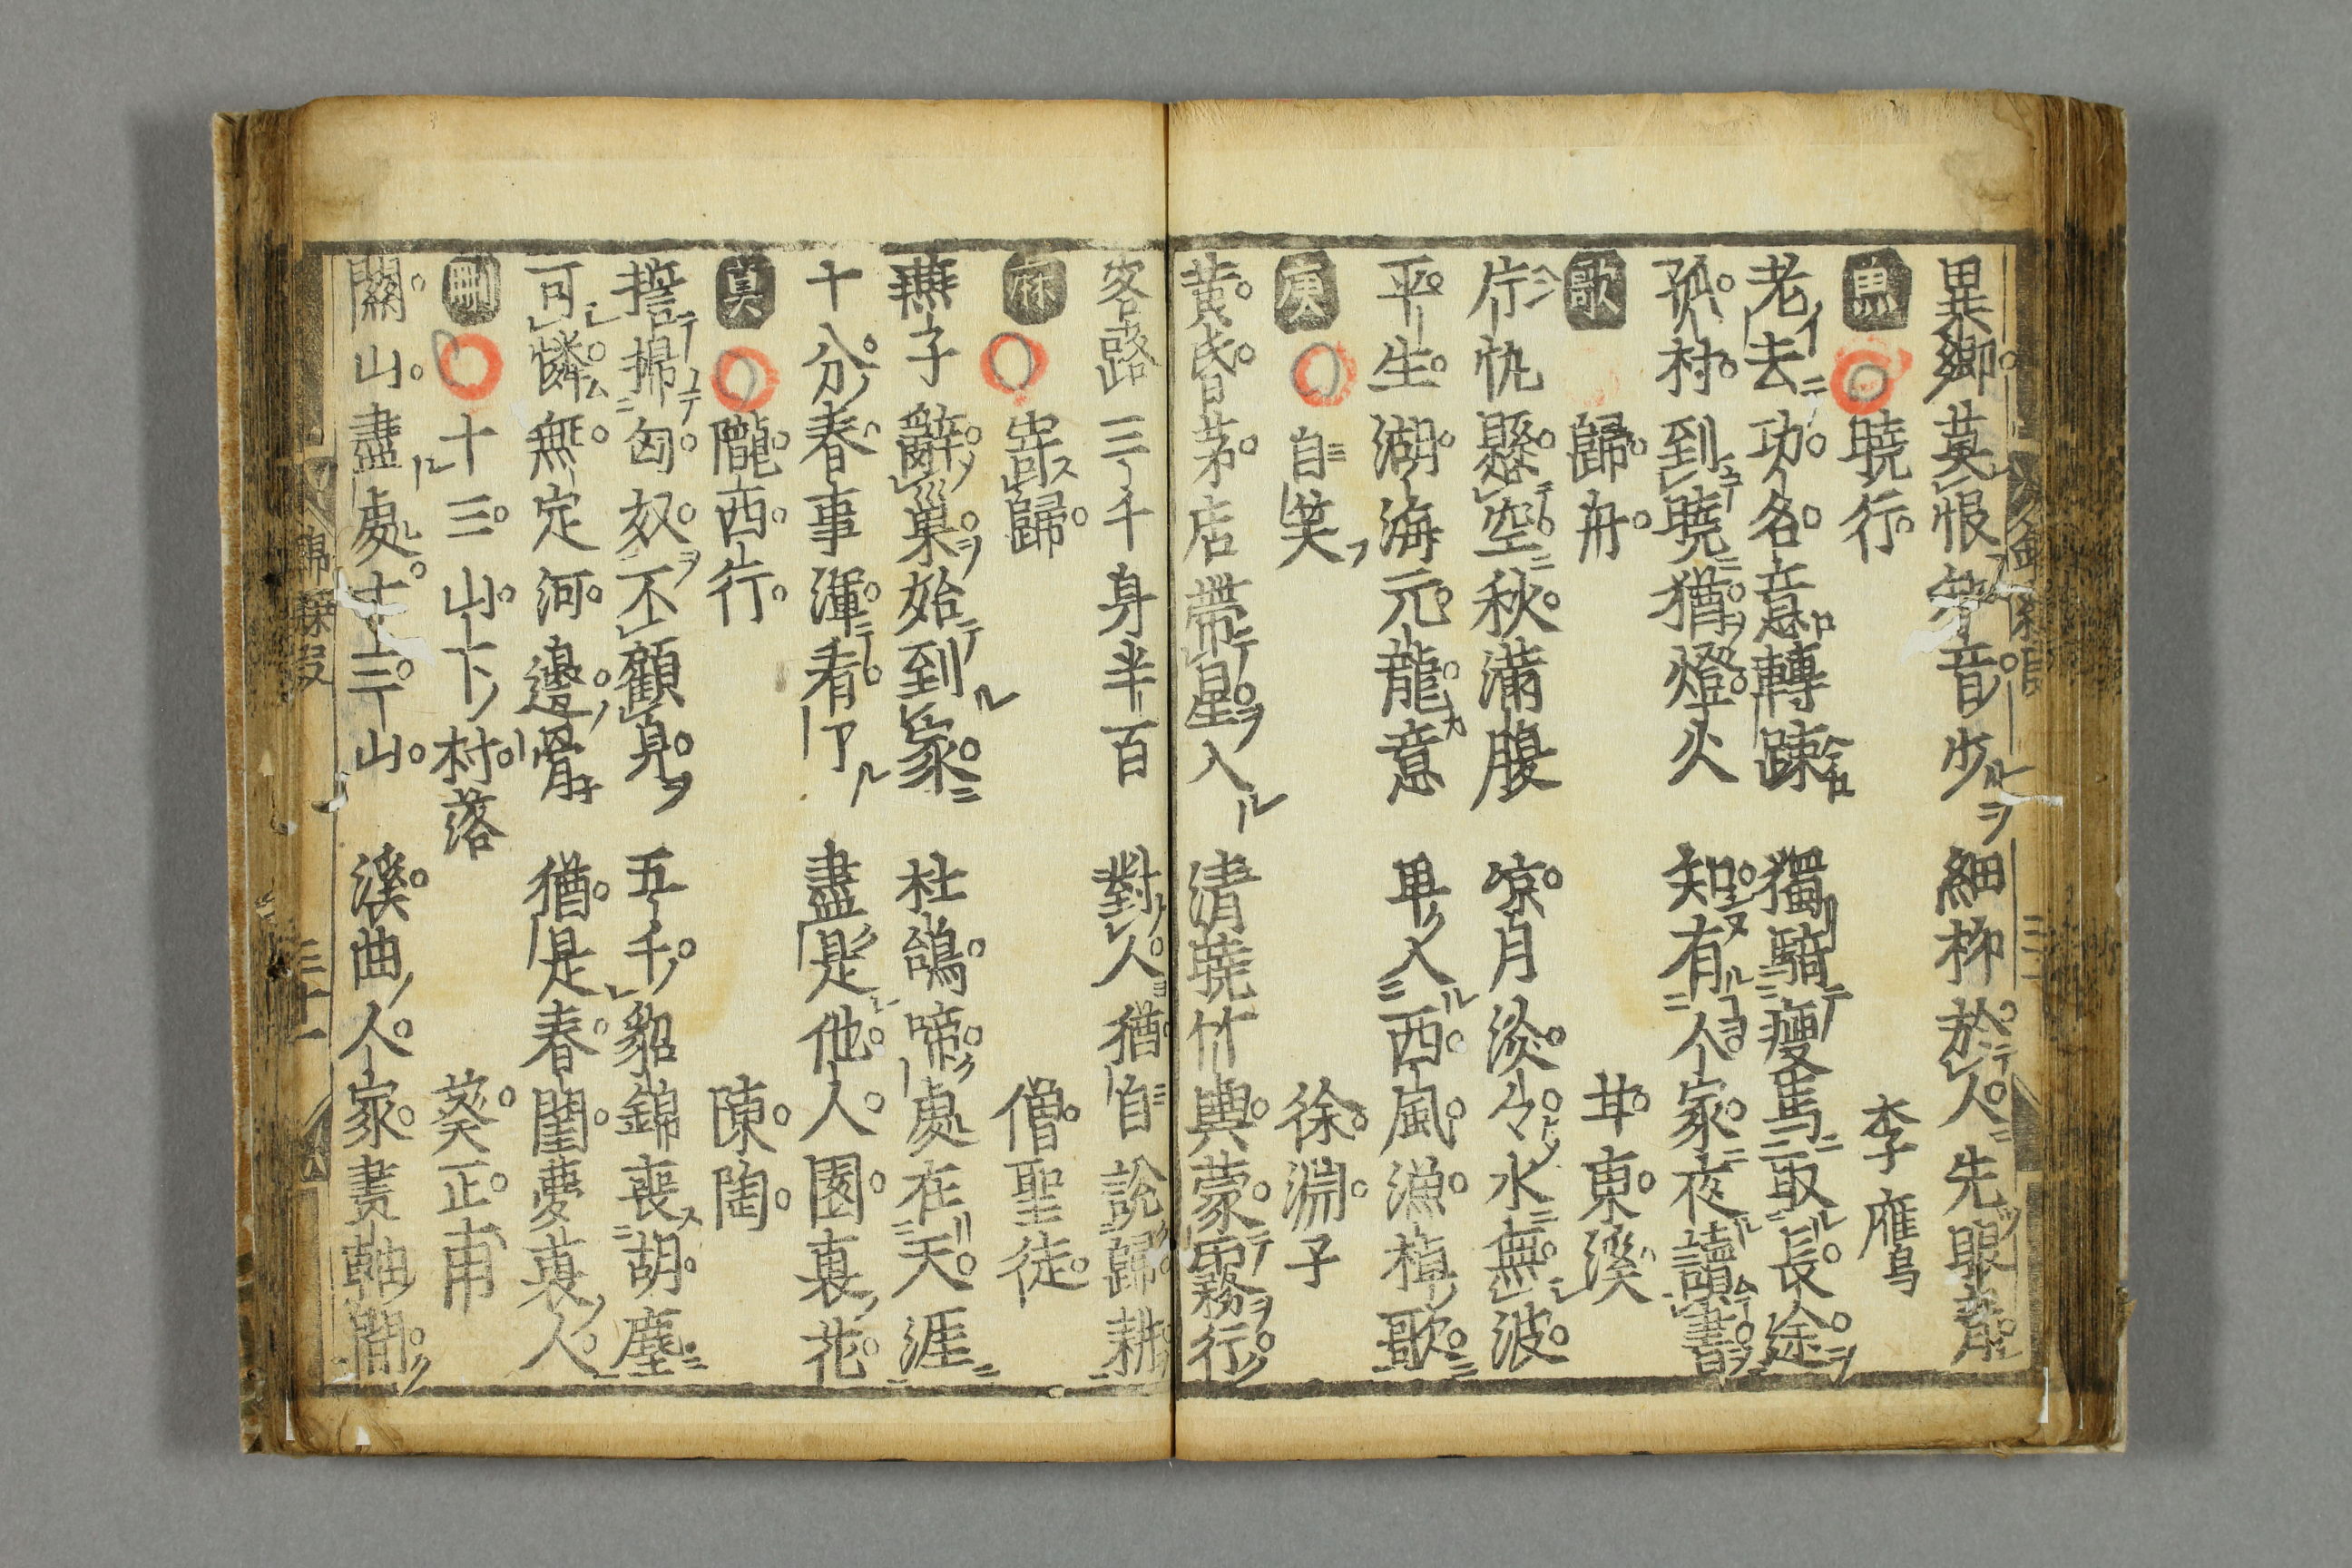 異鄉莫恨知音少　細柳於人先眼青
魚　曉行　李雁烏
老去功名意轉踈　獨騎瘦馬取長途
孤村到曉猶燈火　知有人家夜讀書
歌　歸舟　井東溪
片帆懸空秋滿腹　凉月淡々水無波
平生湖海元龍意　甲入西風漁棹歌
庚　自笑　徐淵子
黃昏茅店帶星入　清曉竹輿蒙霧行
客路三千身半百　對人猶自說歸耕
麻　嵵歸　僧聖徒
燕子辭巢始到家　杜鵑啼處在天涯
十分春事渾看了　盡是他人園裏花
真　隴西行　陳陶
誓掃匈奴不顧身　五千貂錦喪胡塵
可憐無定河邊骨　猶是春閨夢裏人
刪　十三山下村落　葵正甫
關山盡處十三山　溪曲人家畫軸間
錦繡段　三十一